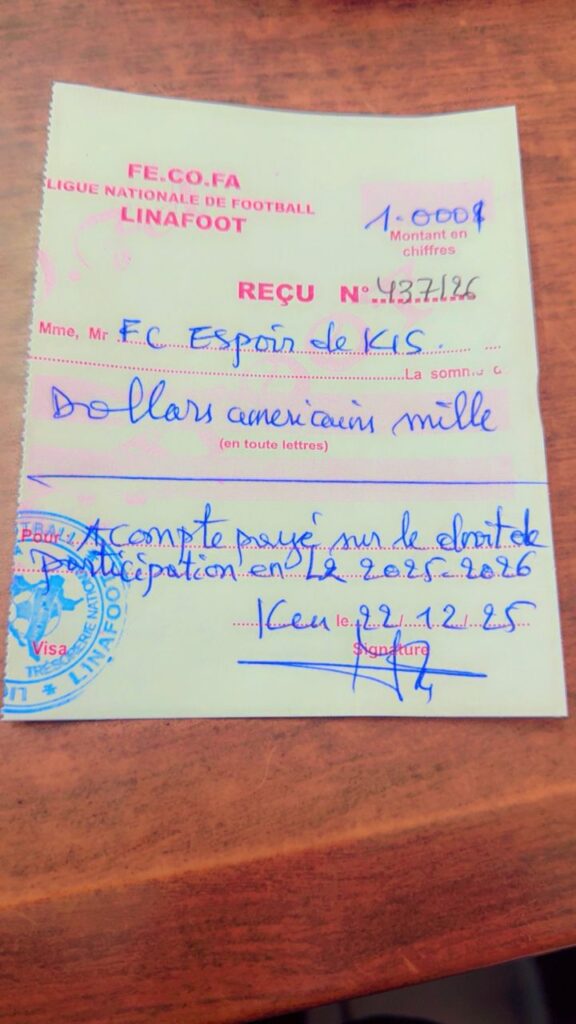 FE.CO.FA
LIGUE NATIONALE DE FOOTBALL
LINAFOOT
1.000$
Montant en
chiffres
REÇU N° 437/26
Mme, Mr FC Espoir de KIS.
La somme d
Dollars americains mille
(en toute lettres)
Pour : Acompte payé sur le droit de
participation en L2 2025-2026
le 22/12/25
Visa
Signature
TRÉSORERIE NATION
LINAFOO